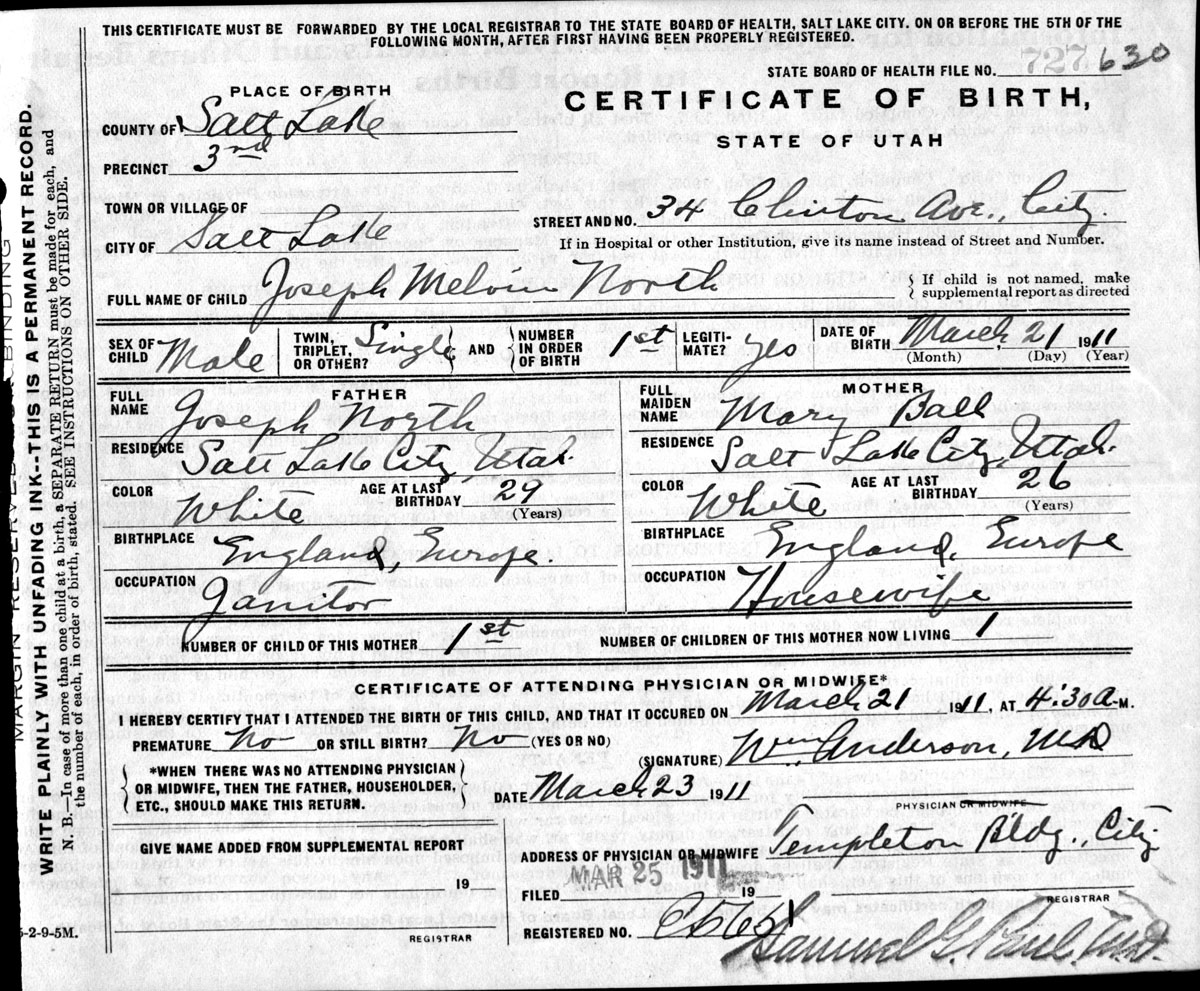 THIS CERTIFICATE MUST BE FORWARDED BY THE LOCAL REGISTRAR TO THE STATE BOARD OF HEALTH, SALT LAKE CITY. ON OR BEFORE THE 5TH OF THE
FOLLOWING MONTH, AFTER FIRST HAVING BEEN PROPERLY REGISTERED.
STATE BOARD OF HEALTH FILE NO. 727 630
PLACE OF BIRTH
CERTIFICATE OF BIRTH,
STATE OF UTAH
COUNTY OF Salt Lake
PRECINCT 3rd
TOWN OR VILLAGE OF
STREET AND NO. 34 Clinton Ave., City.
CITY OF Salt Lake
If in Hospital or other Institution, give its name instead of Street and Number.
FULL NAME OF CHILD Joseph Melvin North
If child is not named, make
supplemental report as directed
SEX OF CHILD Male
TWIN, TRIPLET, OR OTHER? Single AND NUMBER IN ORDER OF BIRTH 1st
LEGITIMATE? yes
DATE OF BIRTH March 21 1911
(Month) (Day) (Year)
FATHER
FULL NAME Joseph North
RESIDENCE Salt Lake City, Utah.
COLOR White AGE AT LAST BIRTHDAY 27 (Years)
BIRTHPLACE England, Europe.
OCCUPATION Janitor
MOTHER
FULL MAIDEN NAME Mary Ball
RESIDENCE Salt Lake City, Utah.
COLOR White AGE AT LAST BIRTHDAY 26 (Years)
BIRTHPLACE England, Europe
OCCUPATION Housewife
NUMBER OF CHILD OF THIS MOTHER 1st NUMBER OF CHILDREN OF THIS MOTHER NOW LIVING 1
CERTIFICATE OF ATTENDING PHYSICIAN OR MIDWIFE*
I HEREBY CERTIFY THAT I ATTENDED THE BIRTH OF THIS CHILD, AND THAT IT OCCURED ON March 21 1911, AT 4:30 a-M.
PREMATURE No OR STILL BIRTH? No (YES OR NO)
(SIGNATURE) Wm. Anderson, MD
*WHEN THERE WAS NO ATTENDING PHYSICIAN
OR MIDWIFE, THEN THE FATHER, HOUSEHOLDER,
ETC., SHOULD MAKE THIS RETURN.
DATE March 23 1911
PHYSICIAN OR MIDWIFE
GIVE NAME ADDED FROM SUPPLEMENTAL REPORT
19
REGISTRAR
ADDRESS OF PHYSICIAN OR MIDWIFE Templeton Bldg., City
FILED MAR 25 1911 19
REGISTRAR
REGISTERED NO.
Samuel G. Paul, MD.
5-2-9-5M.
MARGIN RESERVED FOR BINDING
WRITE PLAINLY WITH UNFADING INK--THIS IS A PERMANENT RECORD.
N. B.—In case of more than one child at a birth, a SEPARATE RETURN must be made for each, and
the number of each, in order of birth, stated. SEE INSTRUCTIONS ON OTHER SIDE.